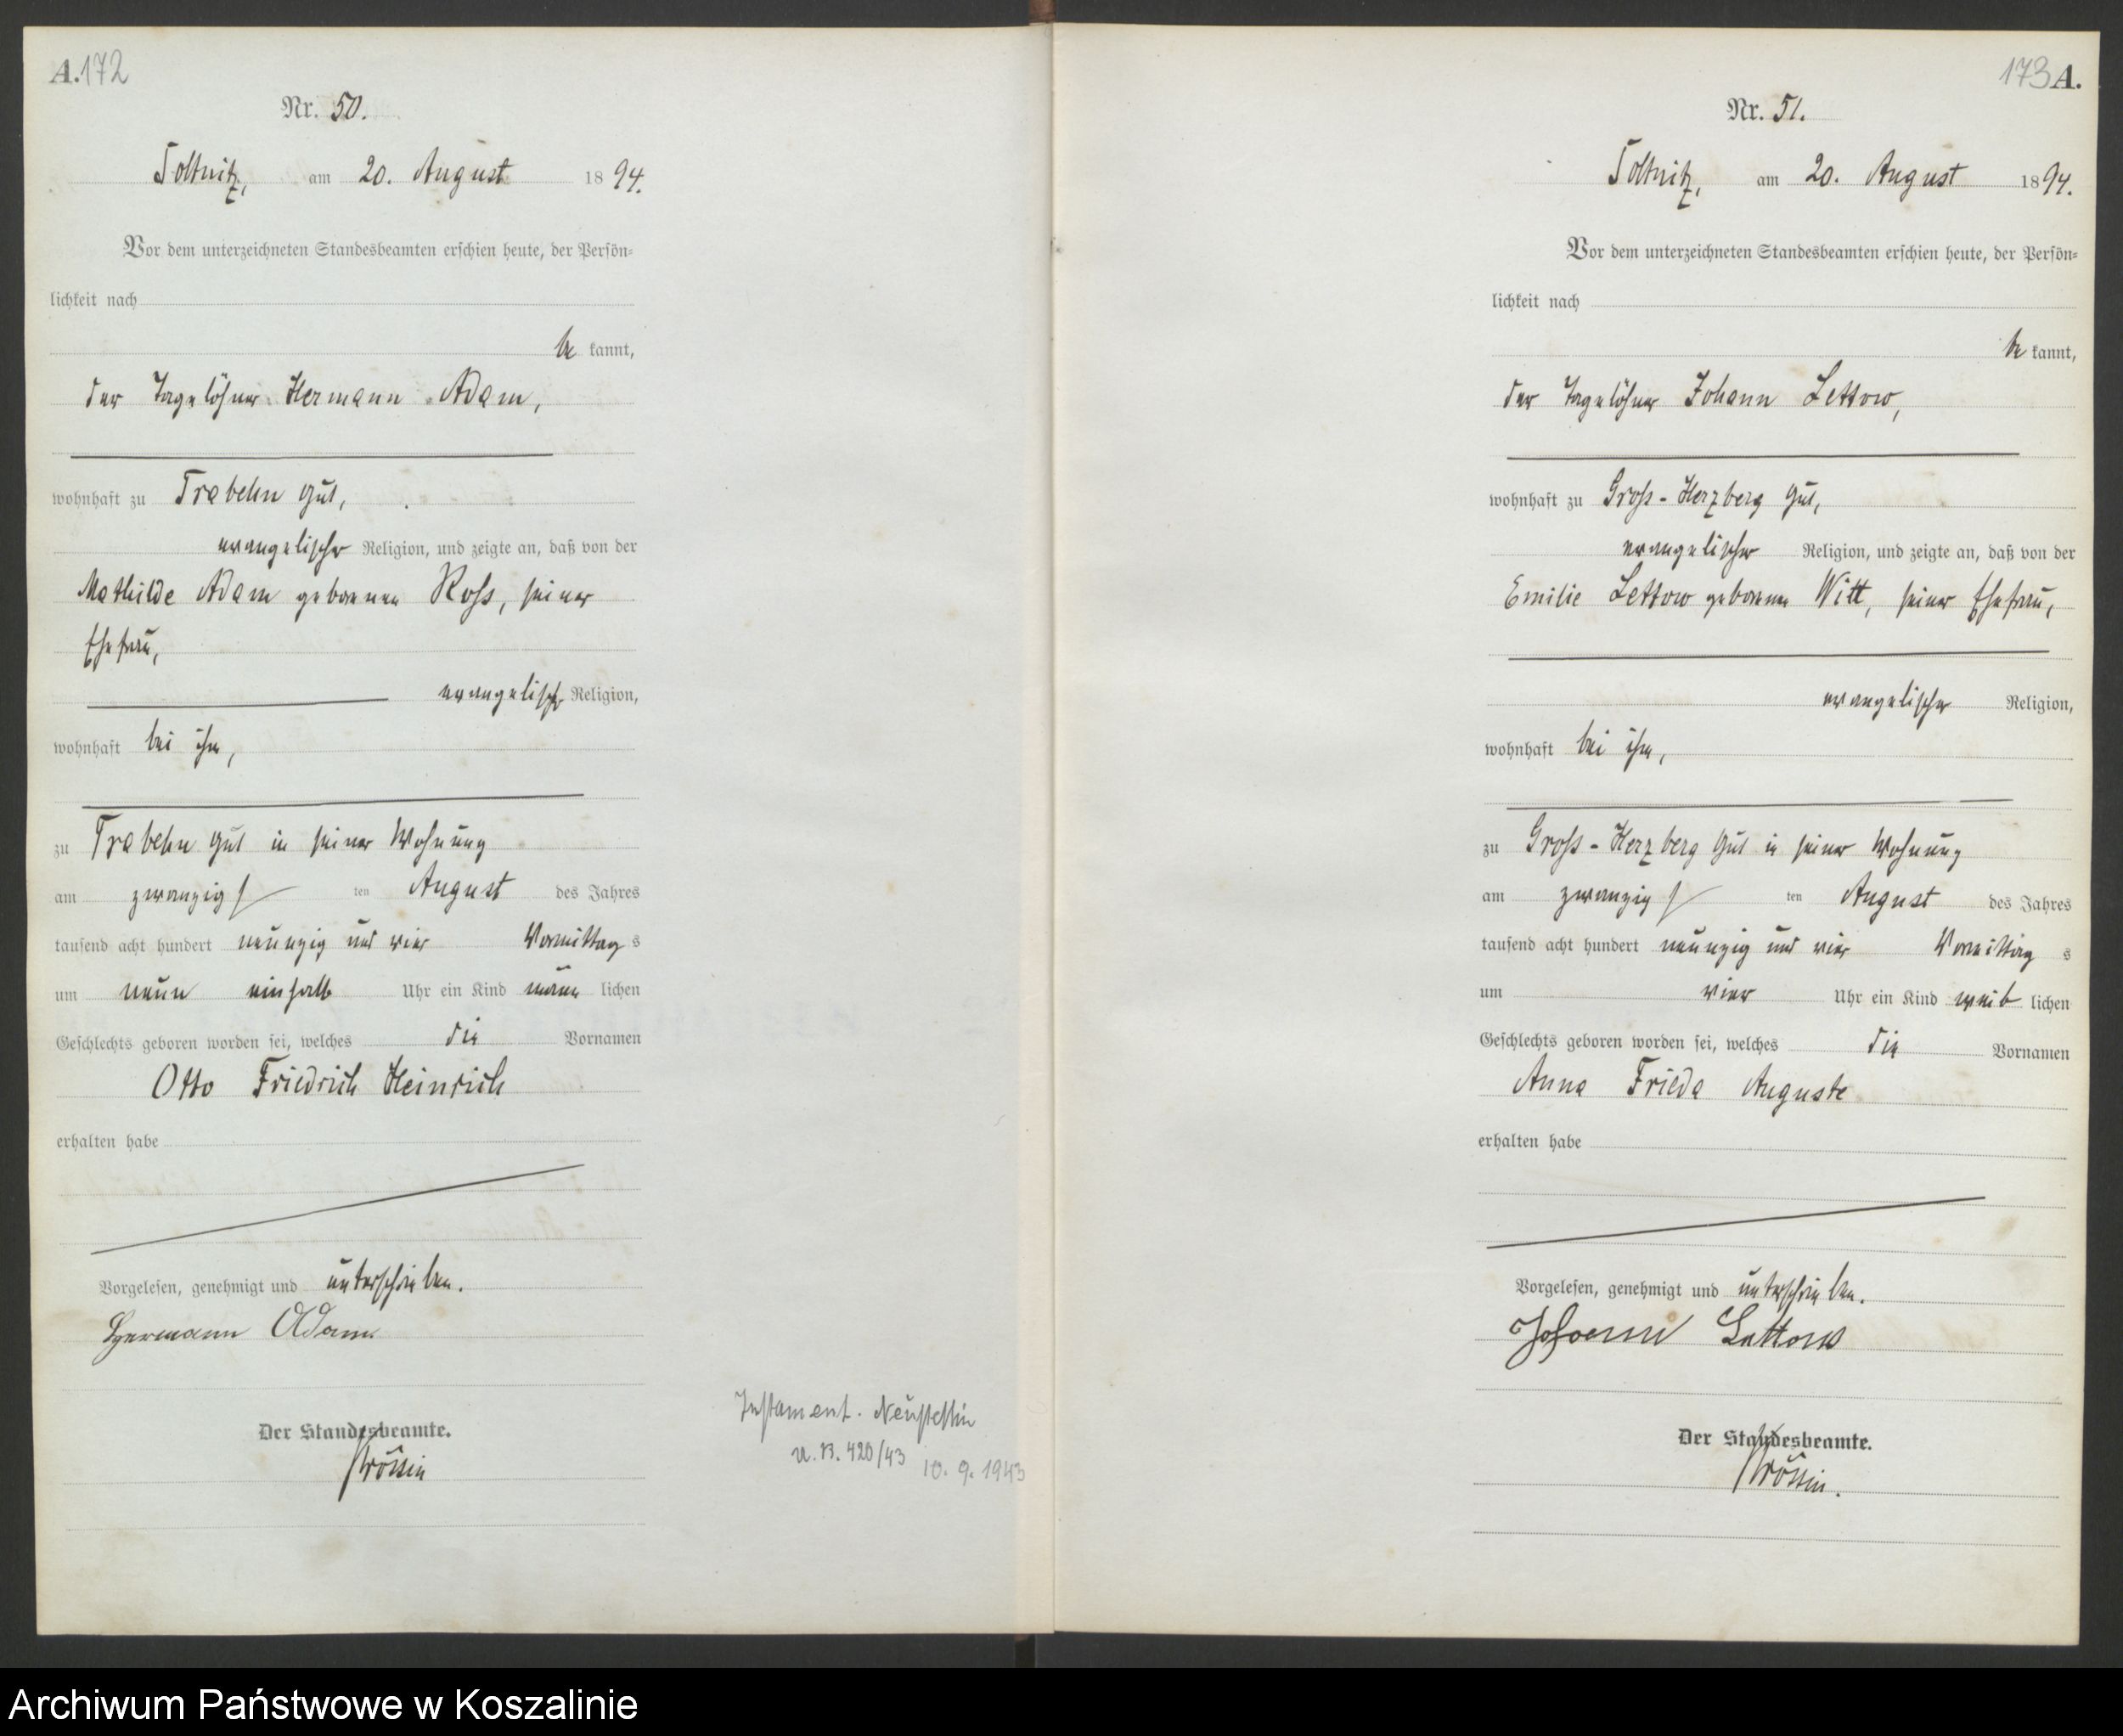 A. 172
Nr. 50.
Soltnitz, am 20. August 1894.
Vor dem unterzeichneten Standesbeamten erschien heute, der Persön-
lichkeit nach
be kannt,
der Tagelöhner Hermann Adam,
wohnhaft zu Trabehn Gut,
evangelischer Religion, und zeigte an, daß von der
Mathilde Adam geborenen Roß, seiner
Ehefrau,
evangelischer Religion,
wohnhaft bei ihm,
zu Trabehn Gut in seiner Wohnung
am zwanzigs ten August des Jahres
tausend acht hundert neunzig und vier Vormittag s
um neun einhalb Uhr ein Kind männ lichen
Geschlechts geboren worden sei, welches die Vornamen
Otto Friedrich Heinrich
erhalten habe
Vorgelesen, genehmigt und unterschrieben.
Hermann Adam
Der Standesbeamte.
Testament. Neustettin
10. 9. 1943
173 A.
Nr. 51.
Soltnitz, am 20. August 1894.
Vor dem unterzeichneten Standesbeamten erschien heute, der Persön-
lichkeit nach
be kannt,
der Tagelöhner Johann Lettow,
wohnhaft zu Groß-Herzberg Gut,
evangelischer Religion, und zeigte an, daß von der
Emilie Lettow geborenen Witt, seiner Ehefrau,
evangelischer Religion,
wohnhaft bei ihm,
zu Groß-Herzberg Gut in seiner Wohnung
am zwanzigs ten August des Jahres
tausend acht hundert neunzig und vier Vormittag s
um vier Uhr ein Kind weib lichen
Geschlechts geboren worden sei, welches die Vornamen
Anna Frieda Auguste
erhalten habe
Vorgelesen, genehmigt und unterschrieben.
Johann Lettow
Der Standesbeamte.
Archiwum Państwowe w Koszalinie